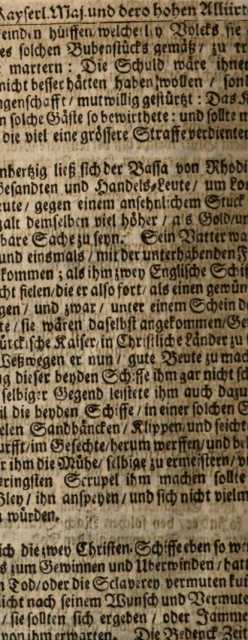 Kayserl. Maj. und dero hohen Alliirt
Feinden hülffen / welche ll y Volcks sie
es solchen Bubenstücks gemäß / zu
martern: Die Schuld wäre ihnen
nicht besser hätten haben wollen / son
ngenschafft / mutwillig gestürtzt: Das
n solche Gäste so bewirthete: und sollte
die viel eine grössere Straffe verdienten
nhertzig ließ sich der Bassa von Rhodi
Gesandten und Handels-Leute / um Lo
eute / gegen einem ansehnlichem Stuck
galt demselben viel höher / a's Gold / un
bare Sache zu seyn. Sein Vatter wa
und einsmals / mit der unterhabenden F
kommen; als ihm zwey Englische Schif
cht fielen / die er alsofort / als einen gewün
gen / und zwar / unter einem Schein d
te / sie wären daselbst angekommen / Ge
ürckische Käiser / in Christliche Länder zu
Weßwegen er nun / gute Beute zu mach
ng dieser beyden Schiffe ihm gar nicht sch
selbiger Gegend leistete ihm auch dazu
il die beyden Schiffe / in einer solchen G
elen Sandbäncken / Klippen / und seicht
urfft / im Gefechte / herum werffen / und be
r ihm die Mühe / selbige zu ermeistern / v
eringsten Scrupel ihm machen sollte
Bley / ihn anspeyen / und sich nicht vielm
n würden.
ich die zwey Christen-Schiffe eben so w
s zum Gewinnen und Uberwinden / hatt
n Tod / oder die Sclaverey vermuten kun
nicht nach seinem Wunsch und Vermute
/ sie sollten sich ergeben / oder Jamme
von ihm erwarten. Die Redeack